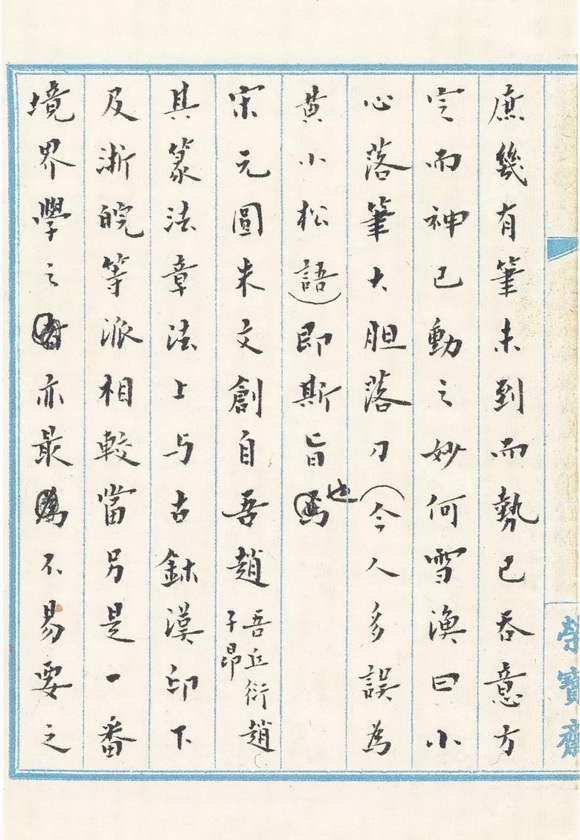 庶幾有筆未到而勢已吞意方
定而神已動之妙何雪漁曰小
心落筆大胆落刀(今人多誤為
黄小松語)即斯旨也
宋元圓朱文創自吾趙吾丘衍趙子昂
其篆法章法上与古鉥漢印下
及浙皖等派相較當另是一番
境界學之亦最不易要之
榮寶齋